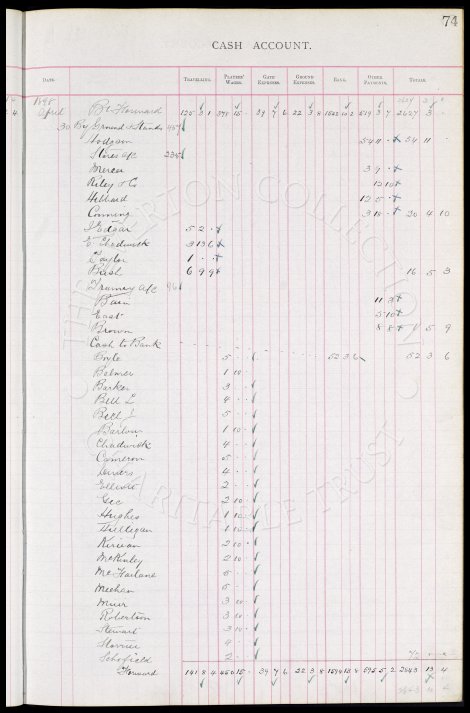 74
CASH ACCOUNT.
DATE. TRAVELLING. PLAYERS' WAGES. GATE EXPENSES. GROUND EXPENSES. BANK. OTHER PAYMENTS. TOTALS.
1895
April Bt Forward 125 3 1 391 15 - 39 7 6 22 3 8 2627 3
30 By Ground & Stands 457
Hodgson 54 11 - 54 11 -
Stores a/c 235
Mercer 3 9 -
Riley & Co
Hibbard 12 5 -
Conning 3 18 - 20 4 10
J Edgar 5 2 -
E. Chadwick 3 13 6
Taylor 1 - -
Bash 6 9 9 16 5 3
Drumey a/c 96
Bain 11 3
East 5 10
Brown 8 8 1 5 9
Cash to Bank
Boyle 5 - 52 3 6 52 3 6
Balmer 1 10
Barker 3 -
Bell L 4 -
Bell J 5 -
Barlow 1 10
Chadwick 4 -
Cameron 5 -
4 -
Elliott 2 -
Gee 2 10
Hughes 1 10
Hilligan 1 10
Kirwan 2 10
McKinley 2 10
McFarlane 5 -
Meehan 5 -
Muir 3 10
Robertson 3 10
Stewart 3 10
Storrier 4 -
Schofield 2 -
Forward 141 8 4 460 15 - 39 7 6 22 3 8 595 5 2 13 4
THE EVERTON COLLECTION CHARITABLE TRUST